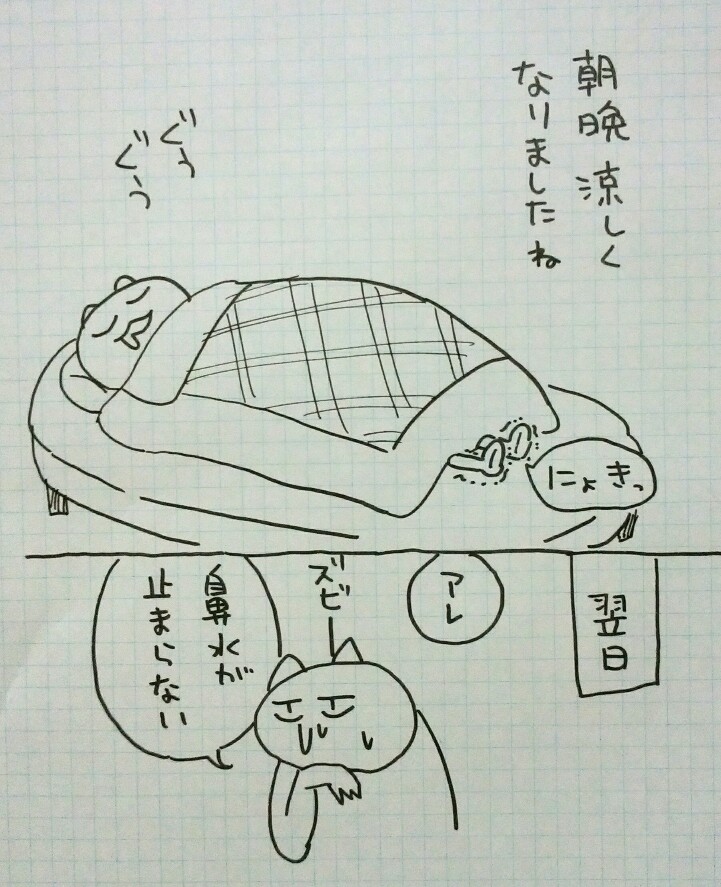 朝晩 涼しく
なりましたね
ぐぅ
ぐぅ
にょきっ
翌日
アレ
ズビー
鼻水が
止まらない